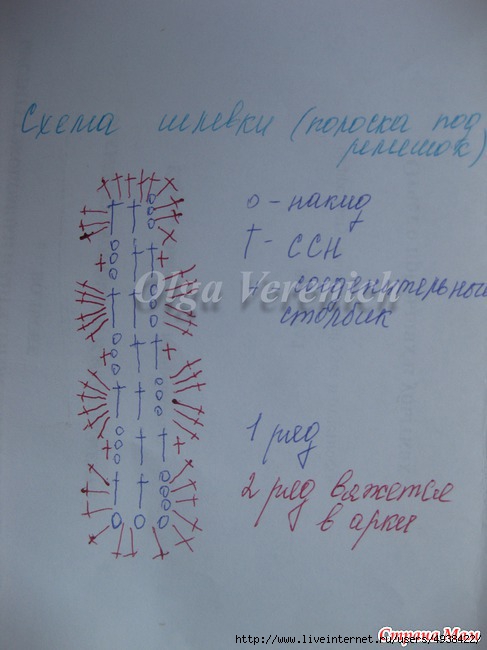 Схема шлевки (полоска под
ремешок)
o - накид
† - ССН
+ соеденительный
столбик
Olga Verenich
1 ряд
2 ряд вяжется
в арки
Страна Мам
http://www.liveinternet.ru/users/4938422/